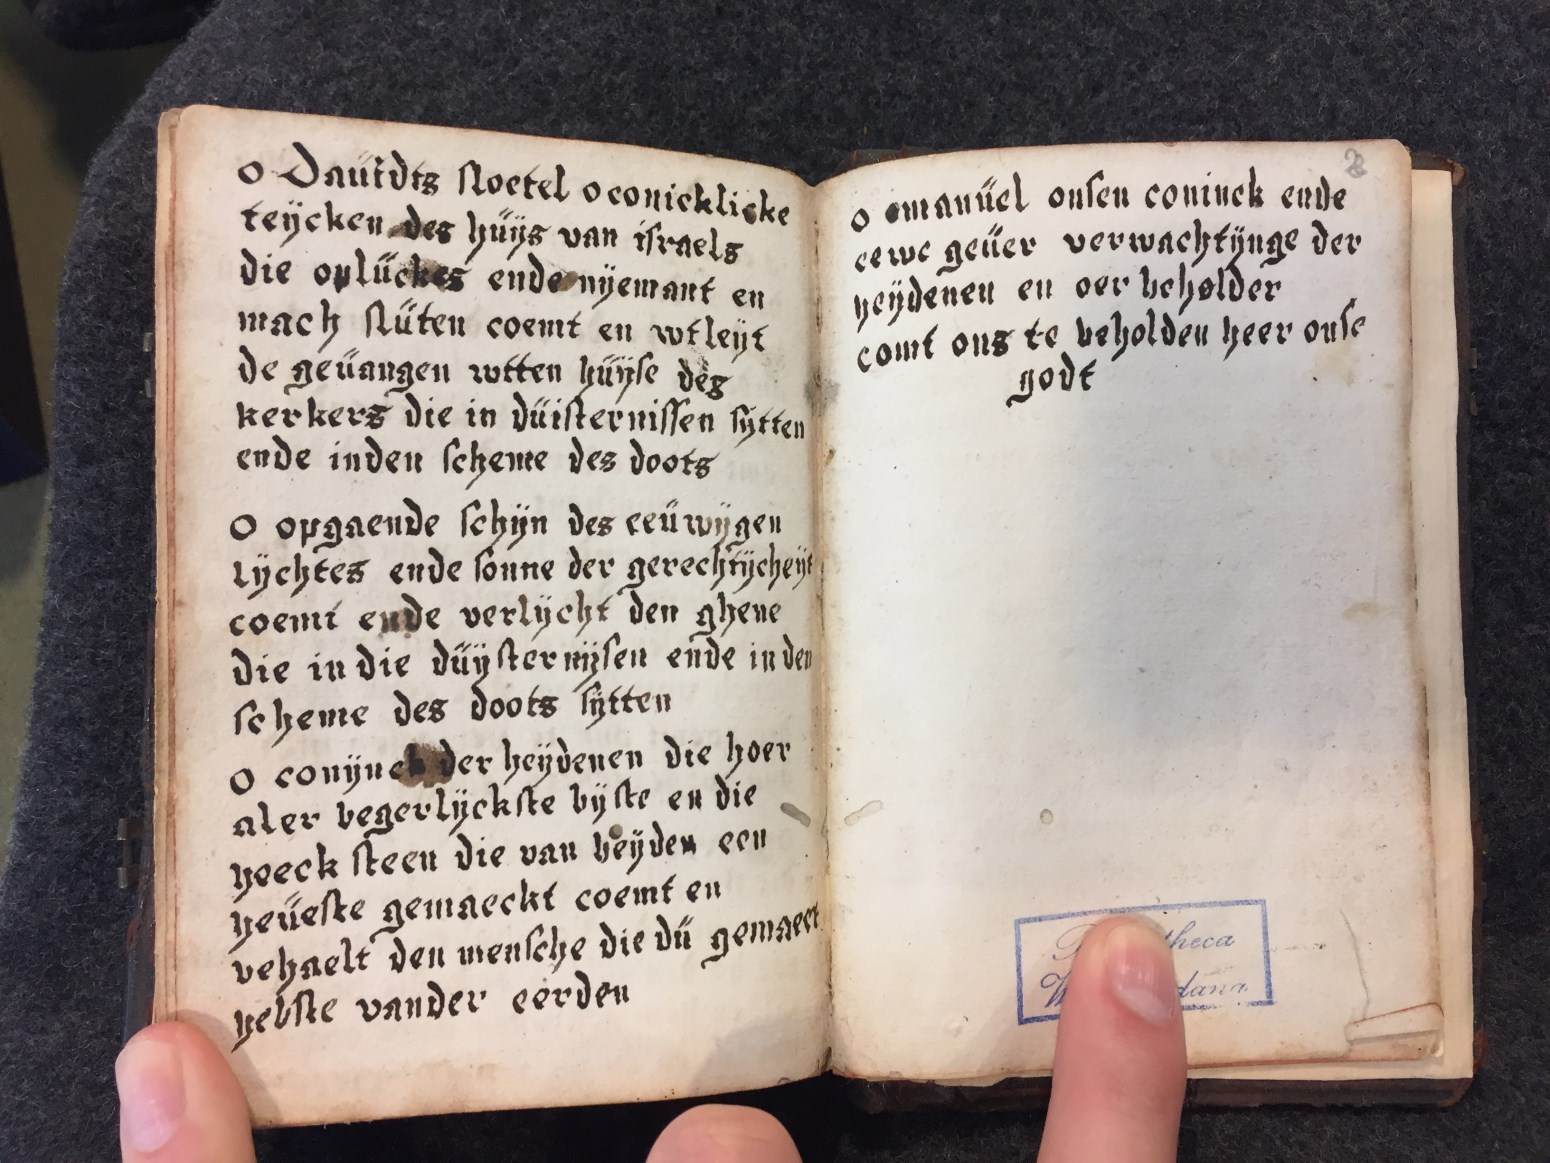 o Dauidts sloetel o conicklicke
teÿcken des hüÿs van israels
die oplückes ende nÿemant en
mach slüten coemt en wtleÿt
de geüangen wtten hüÿse des
kerkers die in düisternissen sÿtten
ende inden scheme des doots
O opgaende schÿn des eeüwÿgen
lÿchtes ende sonne der gerechtÿcheÿt
coemt ende verlÿcht den ghene
die in die düÿsternÿsen ende in den
scheme des doots sÿtten
o conÿnck der heÿdenen die hoer
aler begerlÿckste bÿste en die
hoeck steen die van beÿden een
heüeste gemaeckt coemt en
behaelt den mensche die dü gemaect
hebste vander eerden
2
o emanüel onsen coninck ende
eewe geüer verwachtÿnge der
heÿdenen en oer beholder
comt ons te beholden heer onse
godt